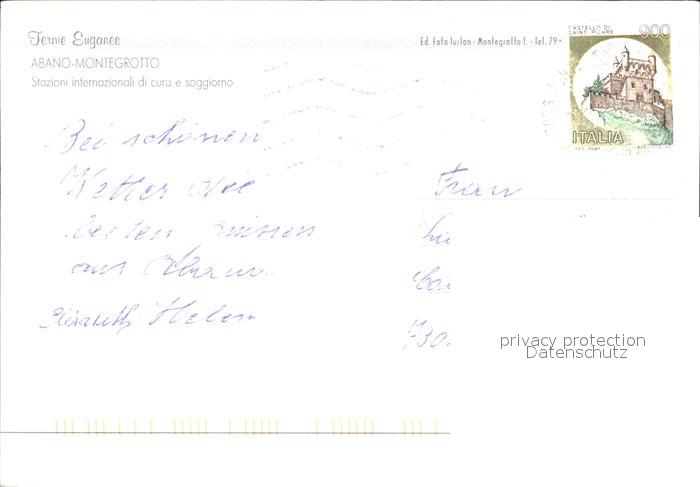 Terme Euganee
ABANO-MONTEGROTTO
Stazioni internazionali di cura e soggiorno
Ed. Foto Turlon - Montegrotto T. - Tel. 79
CASTELLO DI
SAINT PIERRE
900
ITALIA
Bei schönen
Wetter die
besten
aus Abano
Elisabeth Helen
Frau
730
privacy protection
Datenschutz